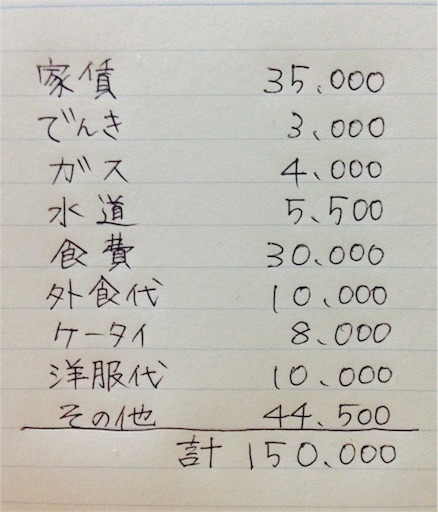 家賃 35、000
でんき 3、000
ガス 4、000
水道 5、500
食費 30、000
外食代 10、000
ケータイ 8、000
洋服代 10、000
その他 44、500
計 150、000